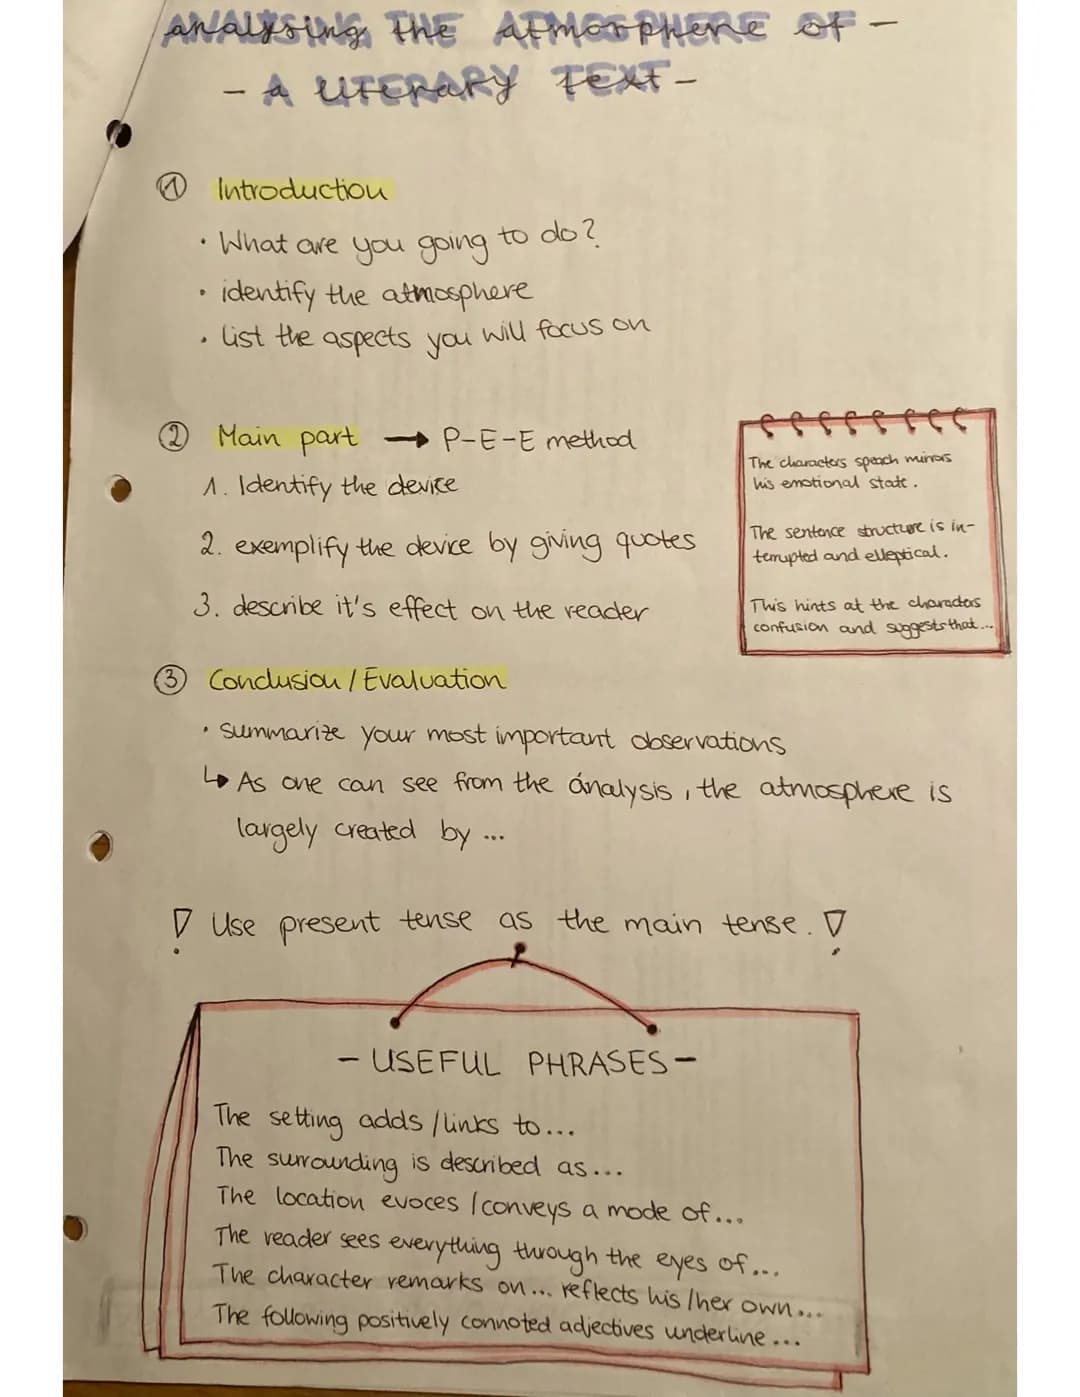 ANALYSING THE ATMOSPHERE OF -
- A LITERARY TEXT -
① Introduction
· What are you going to do?
· identify the atmosphere
· list the aspects you will focus on
② Main part → P-E-E method
1. Identify the device
2. exemplify the device by giving quotes
3. describe it's effect on the reader
The characters speach mirrors
his emotional state.
The sentence structure is in-
terrupted and elleptical.
This hints at the characters
confusion and suggests that...
③ Conclusion / Evaluation
· summarize your most important observations
↳ As one can see from the analysis, the atmosphere is
largely created by ...
! Use present tense as the main tense. !
- USEFUL PHRASES -
The setting adds / links to...
The surrounding is described as...
The location evoces / conveys a mode of...
The reader sees everything through the eyes of...
The character remarks on... reflects his / her own...
The following positively connoted adjectives underline...